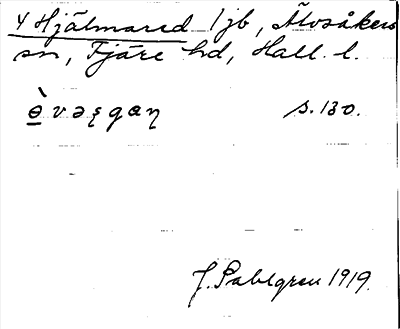 Y Hjälmared 1 jb, Älvsåkers
sn, Fjäre hd, Hall. l.
ɵ̱̀vəȿgaŋ s. 130.
J. Sahlgren 1919.